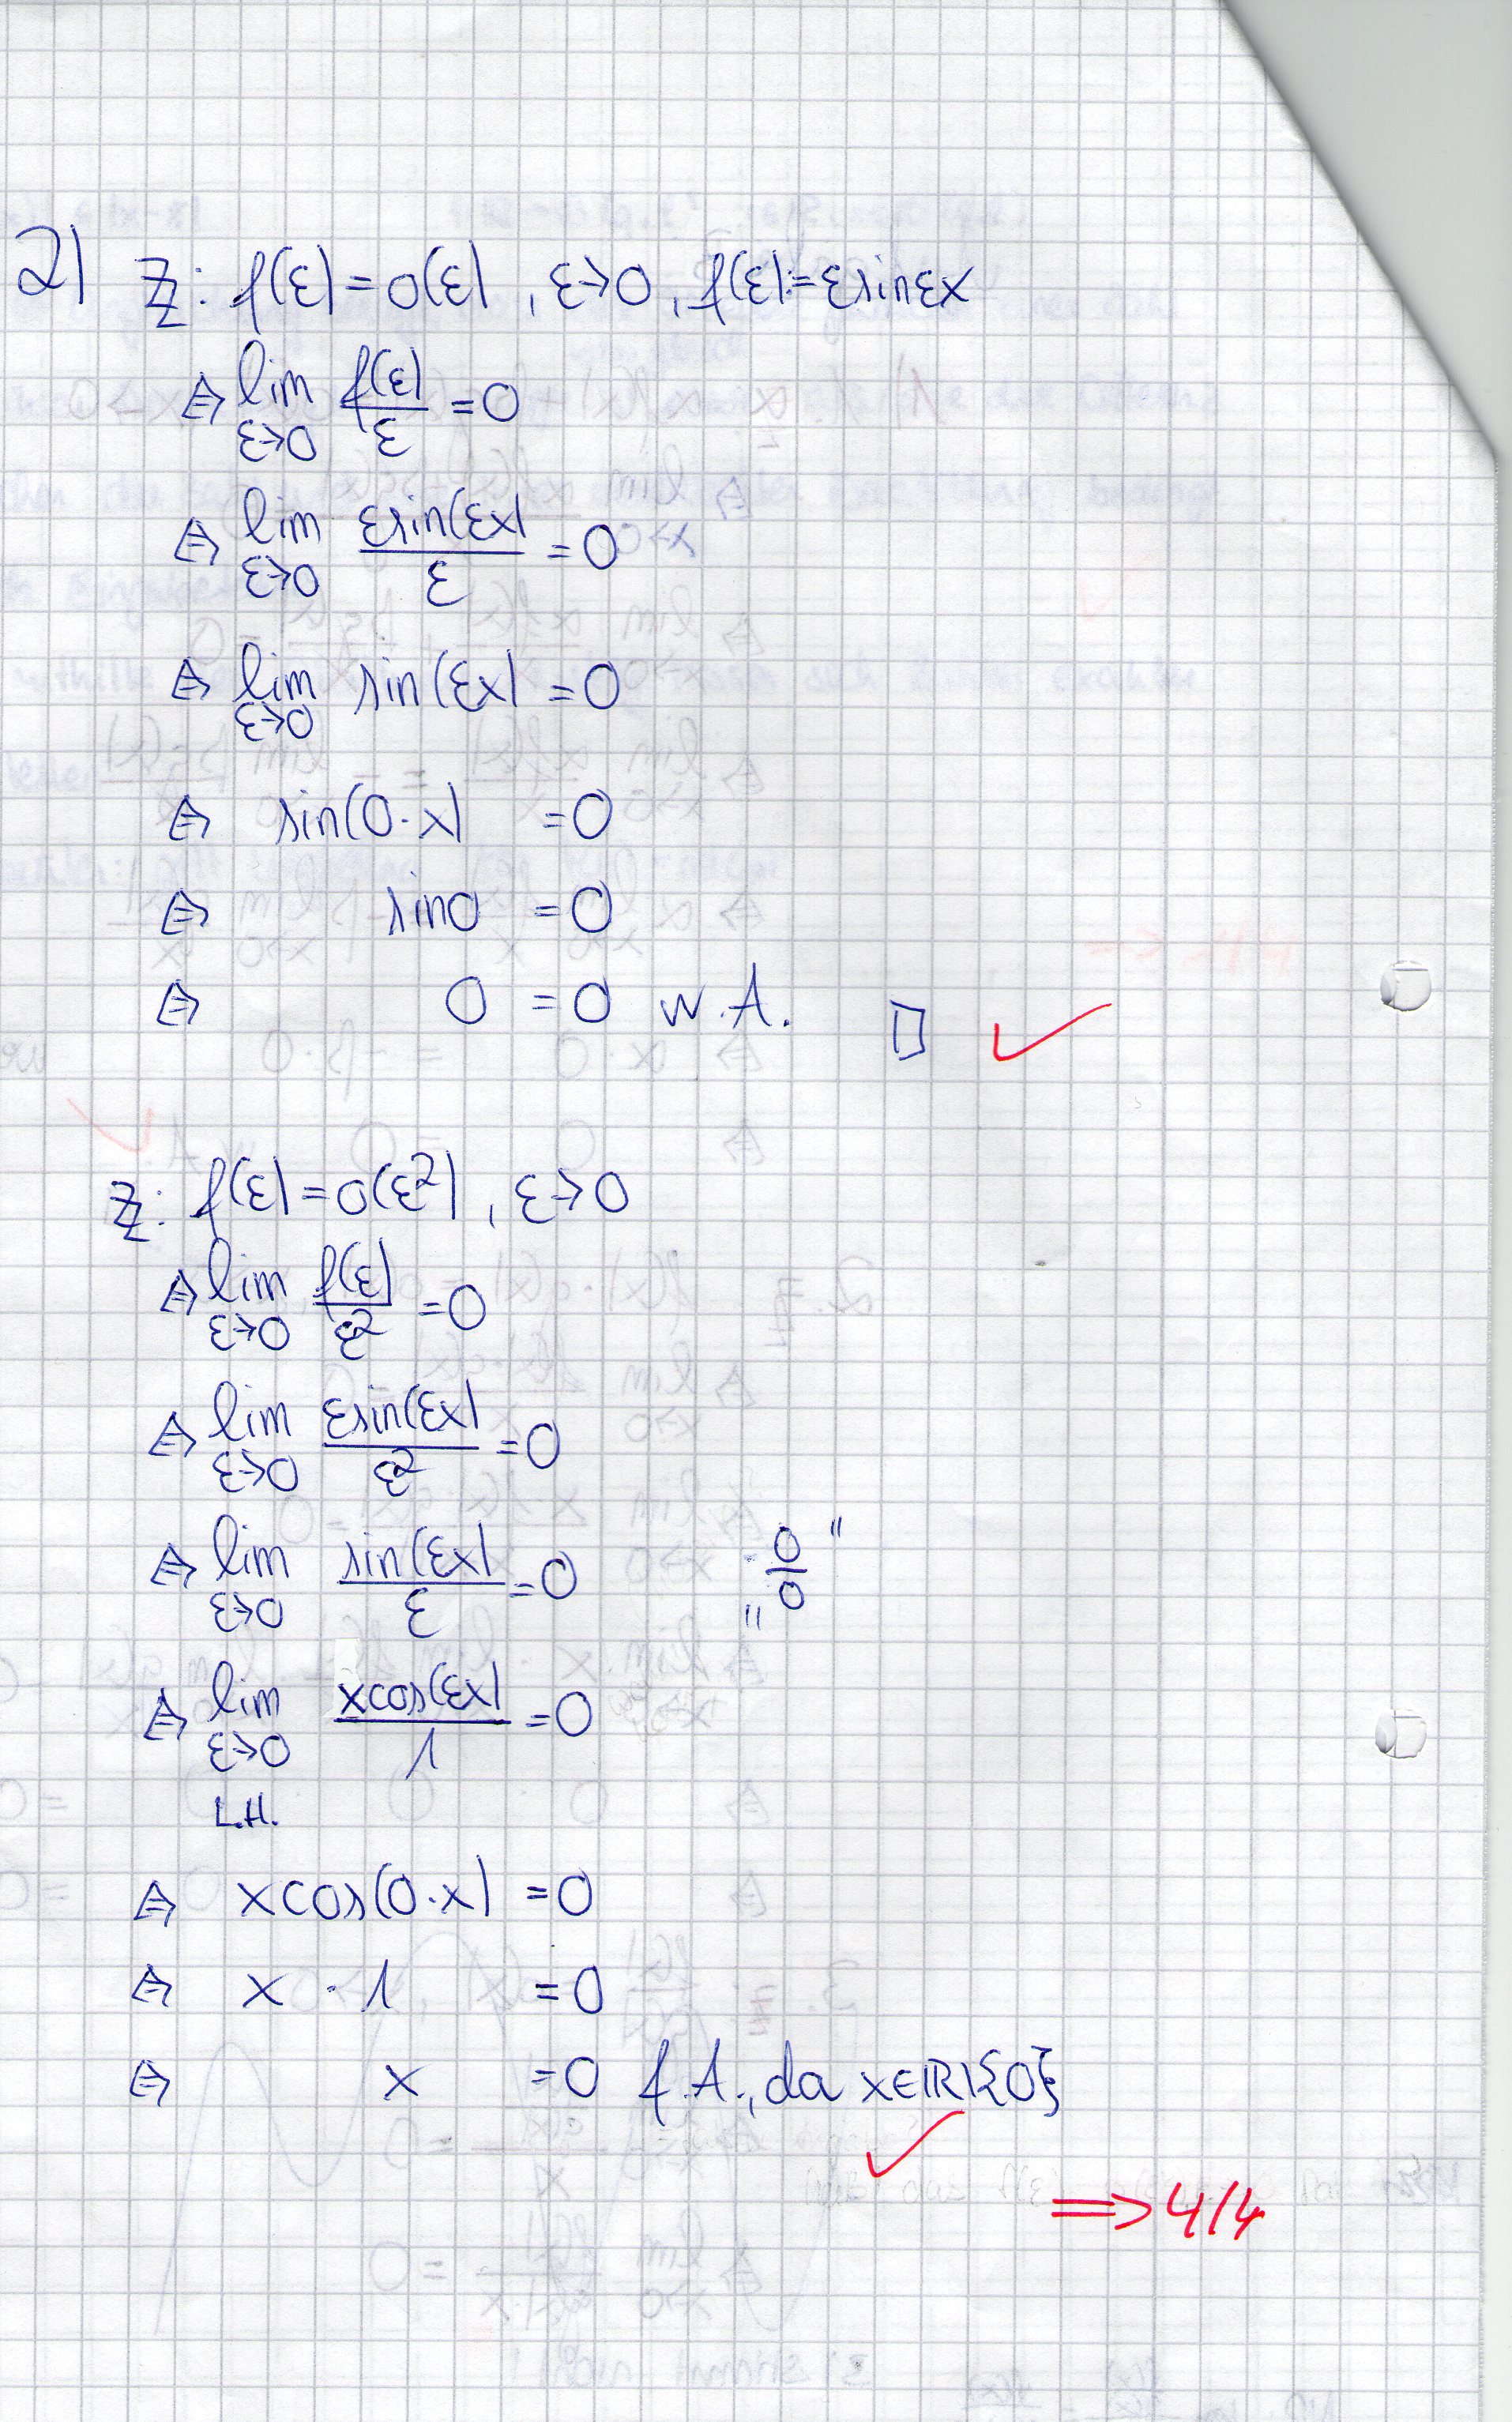 2) Z: f(ε) = o(ε), ε→0, f(ε) := ε sin εx
⇔ lim ε→0 f(ε)/ε = 0
⇔ lim ε→0 ε sin(εx)/ε = 0
⇔ lim ε→0 sin(εx) = 0
⇔ sin(0·x) = 0
⇔ sin 0 = 0
⇔ 0 = 0 w.A. □ ✓
Z: f(ε) = o(ε²), ε→0
⇔ lim ε→0 f(ε)/ε² = 0
⇔ lim ε→0 ε sin(εx)/ε² = 0
⇔ lim ε→0 sin(εx)/ε = 0 „0/0"
⇔ lim ε→0 x cos(εx)/1 = 0
L.H.
⇔ x cos(0·x) = 0
⇔ x · 1 = 0
⇔ x = 0 f.A., da x∈ℝ\{0}
✓
⇒ 4/4